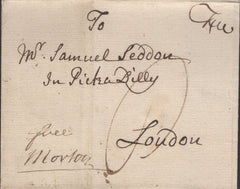 To
Free
Mr. Samuel Seddon
In Pickradilly
London
free
Morton